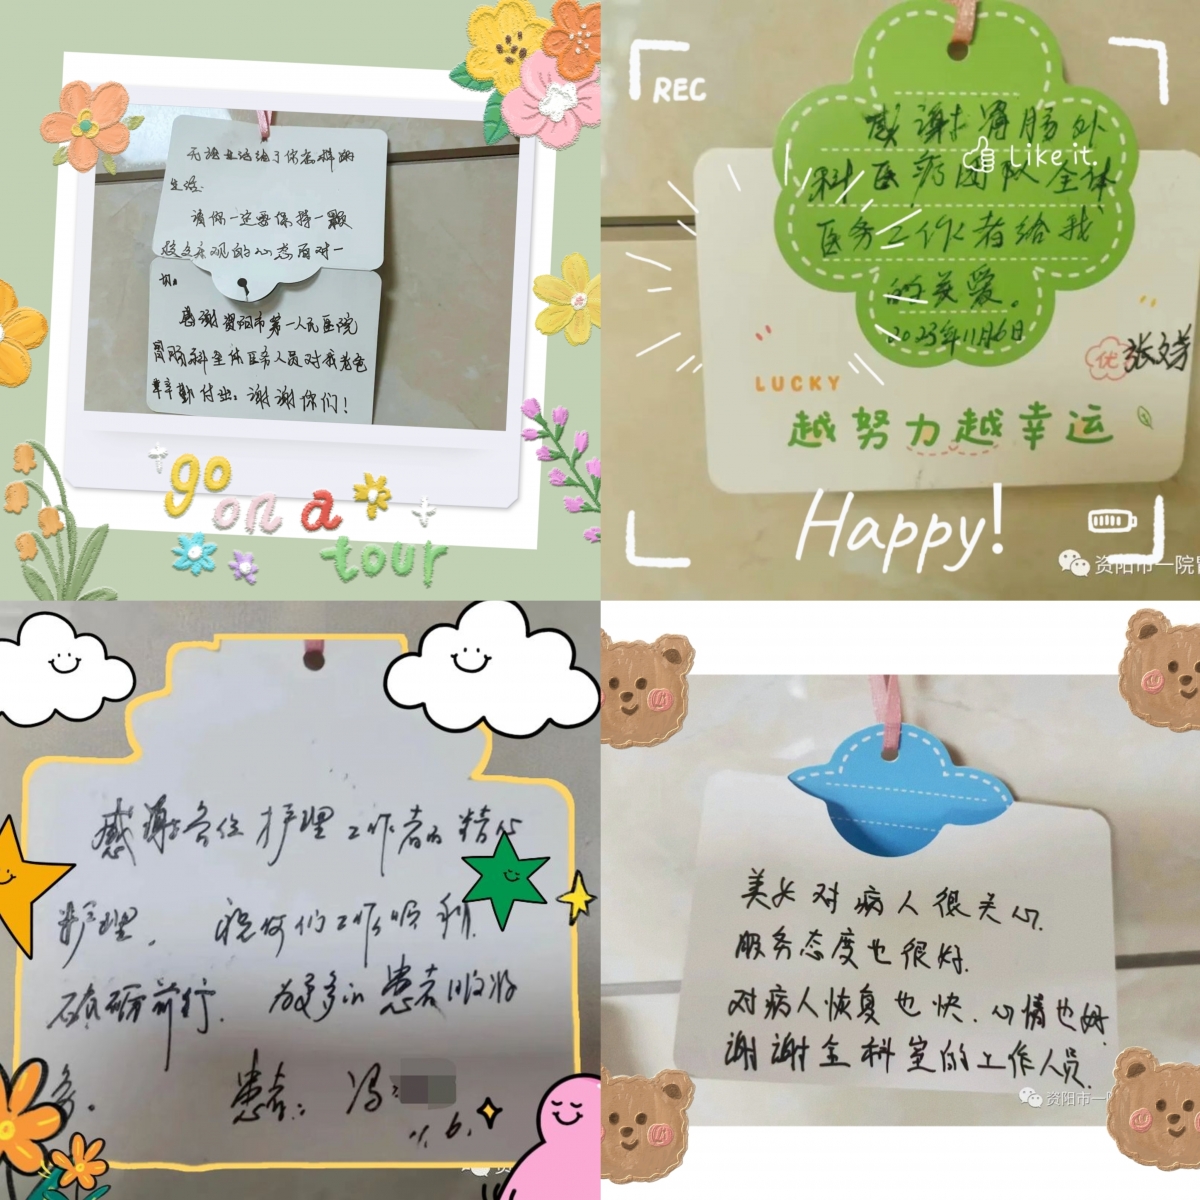 无论生活给了你怎样的
生活.
请你一定要保持一颗
积极乐观的心态面对一
切。
感谢资阳市第一人民医院
胃肠科全体医务人员对我老爸
辛勤付出。谢谢你们!
go
on a
tour
REC
感谢胃肠外
Like it.
科医疗团队全体
医务工作者给我
的关爱。
2023年11月6日
优 张文芳
LUCKY
越努力越幸运
Happy!
资阳市一院胃
感谢各位护理工作者的精心
护理. 祝你们工作顺利
砥砺前行. 为更多的患者服务
患者: 冯
11.6.
美女对病人很关心.
服务态度也很好.
对病人恢复也快.心情也好
谢谢全科室的工作人员.
资阳市一院